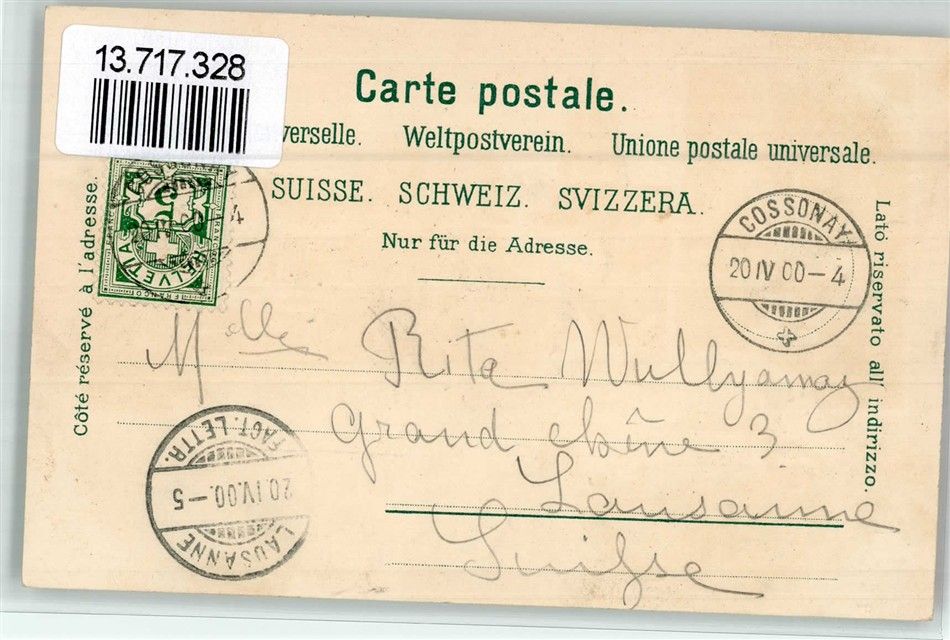 13.717.328
Carte postale.
verselle. Weltpostverein. Unione postale universale.
SUISSE. SCHWEIZ. SVIZZERA.
Nur für die Adresse.
Côté réservé à l'adresse.
Lato riservato all' indirizzo.
HELVETIA
FRANCO
5
4
COSSONAY
20 IV 00-4
Melle Rita Wullyamoz
Grand chêne 3
Lausanne
Suisse
FACT. LETTR.
20 IV.00.-5
LAUSANNE